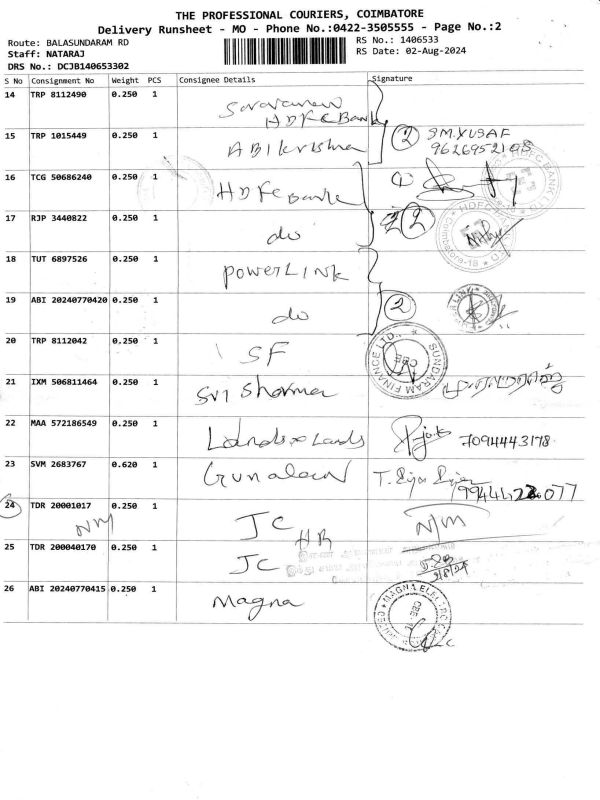 THE PROFESSIONAL COURIERS, COIMBATORE
Delivery Runsheet - MO - Phone No.:0422-3505555 - Page No.:2
Route: BALASUNDARAM RD
Staff: NATARAJ
DRS No.: DCJB140653302
RS No.: 1406533
RS Date: 02-Aug-2024
S No Consignment No Weight PCS Consignee Details Signature
14 TRP 8112490 0.250 1 Saravanan
HDFC Bank
15 TRP 1015449 0.250 1 ABIkrishna 2 SM.YUSAF
9626952108
16 TCG 50686240 0.250 1 HDFC Bank
17 RJP 3440822 0.250 1 do 2
18 TUT 6897526 0.250 1 POWERLINK
19 ABI 20240770420 0.250 1 do 2
20 TRP 8112042 0.250 1 SF SUNDARAM FINANCE LTD., CBE
21 IXM 506811464 0.250 1 Sri Sharma
22 MAA 572186549 0.250 1 Lands & Lands 7094443178
23 SVM 2683767 0.620 1 Gunalan
24 TDR 20001017 0.250 1 JC N/M
NM HR
25 TDR 200040170 0.250 1 JC 2/8/24
26 ABI 20240770415 0.250 1 Magna MAGNA ELECTRO